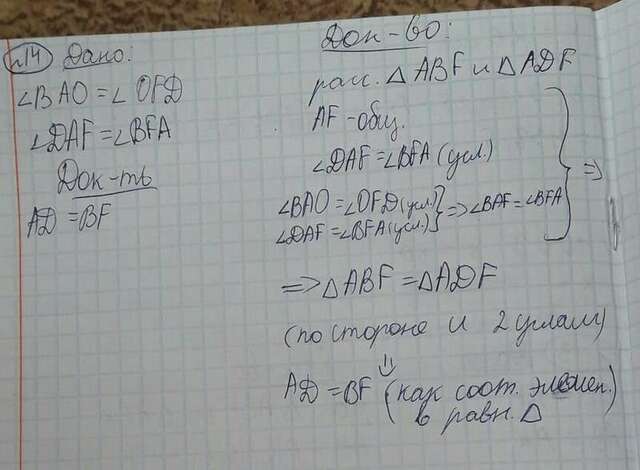 n14 Дано:
∠BAO = ∠OFD
∠DAF = ∠BFA
Док-ть
AD = BF
Док-во:
расс. △ABF и △ADF
AF - общ.
∠DAF = ∠BFA (усл.)
∠BAO = ∠OFD (усл.)
∠DAF = ∠BFA (усл.)
} => ∠BAF = ∠BFA
} =>
=> △ABF = △ADF
(по стороне и 2 углам)
⇓
AD = BF (как соот. элемен.
в равн. △)